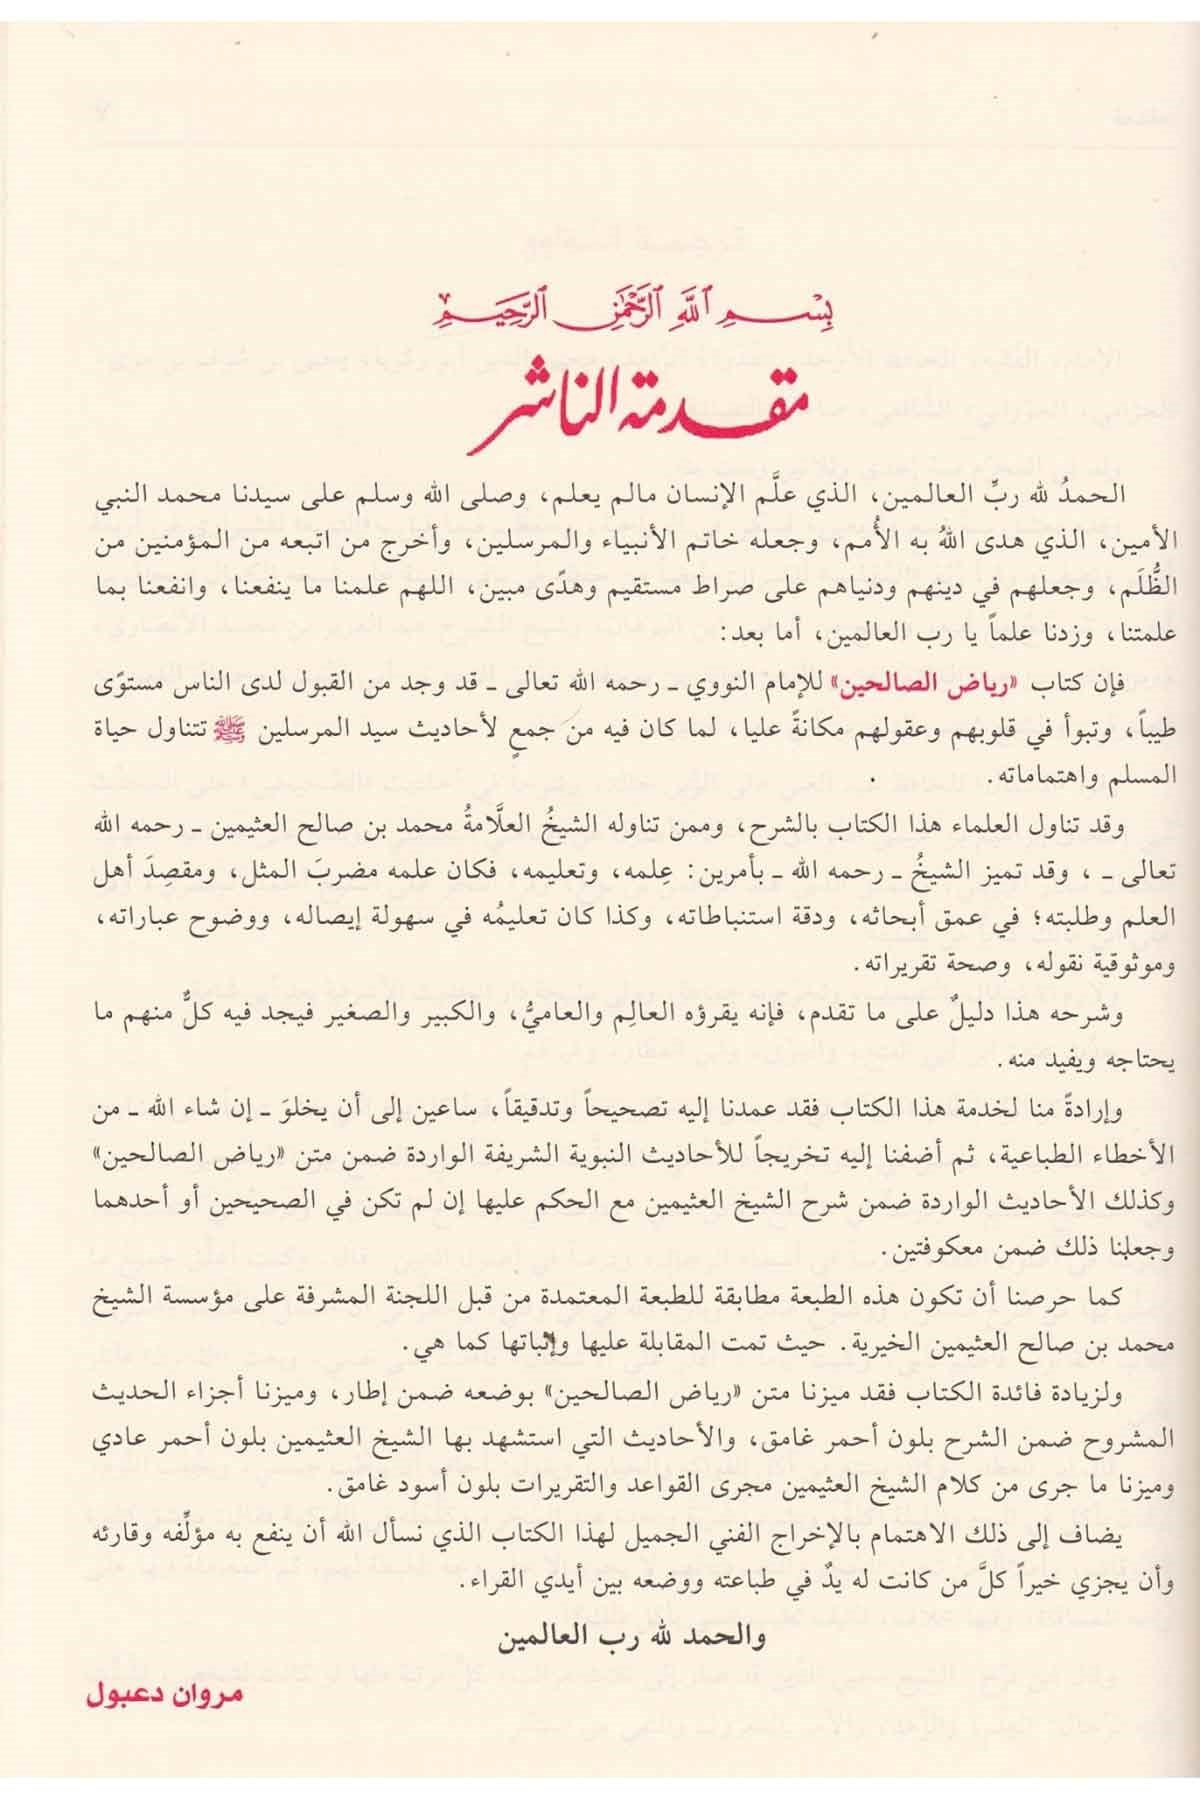 بِسْمِ اللَّهِ الرَّحْمَٰنِ الرَّحِيمِ
مقدمة الناشر
الحمدُ لله ربِّ العالمين، الذي علَّم الإنسان مالم يعلم، وصلى الله وسلم على سيدنا محمد النبي
الأمين، الذي هدى اللهُ به الأُمم، وجعله خاتم الأنبياء والمرسلين، وأخرج من اتبعه من المؤمنين من
الظُّلَم، وجعلهم في دينهم ودنياهم على صراط مستقيم وهدًى مبين، اللهم علمنا ما ينفعنا، وانفعنا بما
علمتنا، وزدنا علماً يا رب العالمين، أما بعد:
فإن كتاب «رياض الصالحين» للإمام النووي ـ رحمه الله تعالى ـ قد وجد من القبول لدى الناس مستوًى
طيباً، وتبوأ في قلوبهم وعقولهم مكانةً عليا، لما كان فيه من جمعٍ لأحاديث سيد المرسلين ﷺ تتناول حياة
المسلم واهتماماته.
وقد تناول العلماء هذا الكتاب بالشرح، وممن تناوله الشيخُ العلَّامةُ محمد بن صالح العثيمين ـ رحمه الله
تعالى ـ ، وقد تميز الشيخُ ـ رحمه الله ـ بأمرين: عِلمه، وتعليمه، فكان علمه مضربَ المثل، ومقصِدَ أهل
العلم وطلبته؛ في عمق أبحاثه، ودقة استنباطاته، وكذا كان تعليمُه في سهولة إيصاله، ووضوح عباراته،
وموثوقية نقوله، وصحة تقريراته.
وشرحه هذا دليلٌ على ما تقدم، فإنه يقرؤه العالِم والعاميُّ، والكبير والصغير فيجد فيه كلٌّ منهم ما
يحتاجه ويفيد منه.
وإرادةً منا لخدمة هذا الكتاب فقد عمدنا إليه تصحيحاً وتدقيقاً، ساعين إلى أن يخلوَ ـ إن شاء الله ـ من
الأخطاء الطباعية، ثم أضفنا إليه تخريجاً للأحاديث النبوية الشريفة الواردة ضمن متن «رياض الصالحين»
وكذلك الأحاديث الواردة ضمن شرح الشيخ العثيمين مع الحكم عليها إن لم تكن في الصحيحين أو أحدهما
وجعلنا ذلك ضمن معكوفتين.
كما حرصنا أن تكون هذه الطبعة مطابقة للطبعة المعتمدة من قبل اللجنة المشرفة على مؤسسة الشيخ
محمد بن صالح العثيمين الخيرية. حيث تمت المقابلة عليها وإثباتها كما هي.
ولزيادة فائدة الكتاب فقد ميزنا متن «رياض الصالحين» بوضعه ضمن إطار، وميزنا أجزاء الحديث
المشروح ضمن الشرح بلون أحمر غامق، والأحاديث التي استشهد بها الشيخ العثيمين بلون أحمر عادي
وميزنا ما جرى من كلام الشيخ العثيمين مجرى القواعد والتقريرات بلون أسود غامق.
يضاف إلى ذلك الاهتمام بالإخراج الفني الجميل لهذا الكتاب الذي نسأل الله أن ينفع به مؤلِّفه وقارئه
وأن يجزي خيراً كلَّ من كانت له يدٌ في طباعته ووضعه بين أيدي القراء.
والحمد لله رب العالمين
مروان دعبول